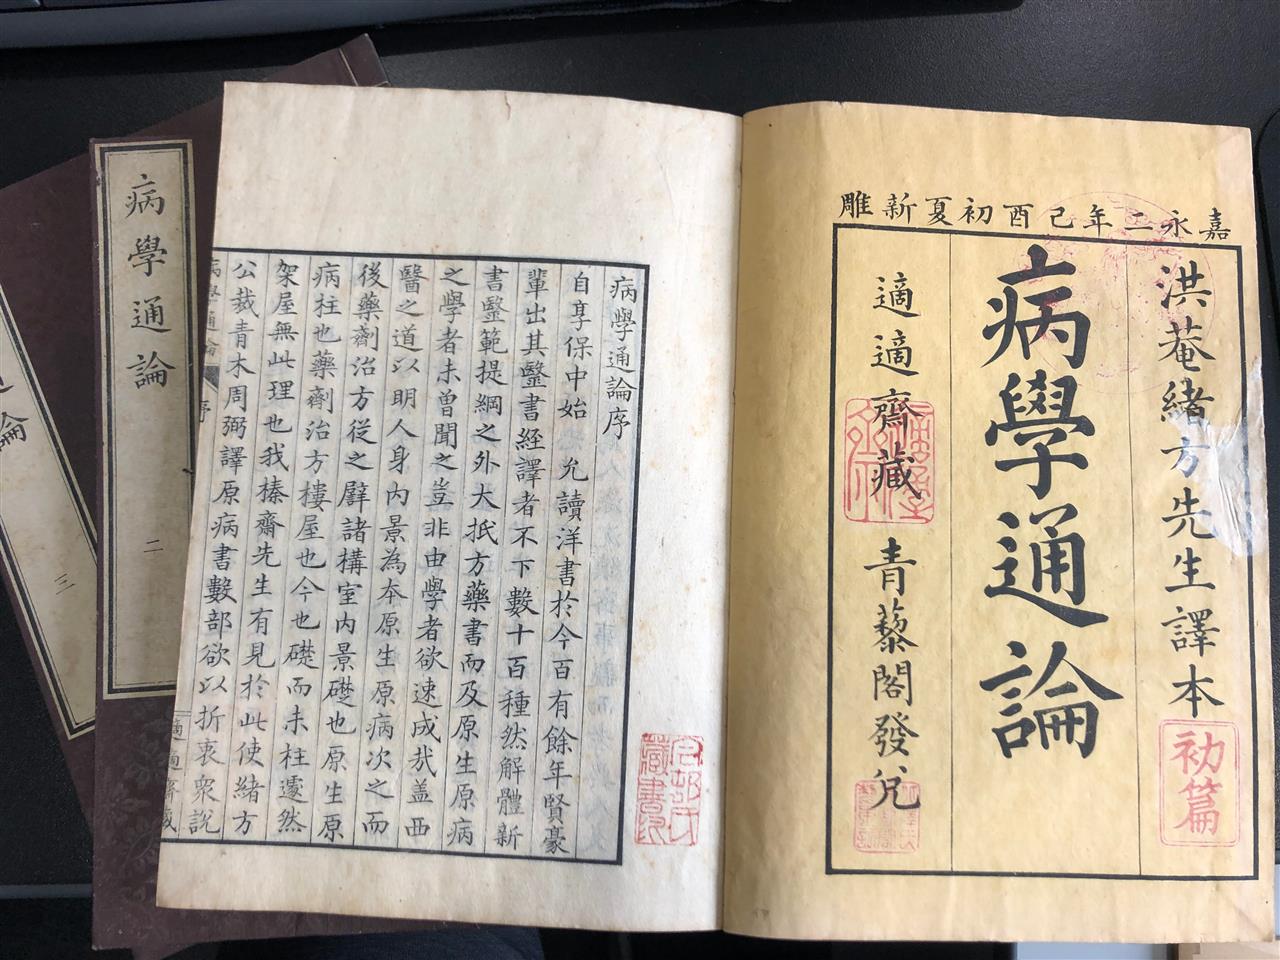 嘉永二年己酉初夏新雕
洪菴緒方先生譯本
初篇
病學通論
適適齋藏
青藜閣發兌
病學通論序
自享保中始允讀洋書於今百有餘年賢豪
輩出其醫書經譯者不下數十百種然解體新
書醫範提綱之外大抵方藥書而及原生原病
之學者未曾聞之豈非由學者欲速成哉蓋西
醫之道以明人身內景為本原生原病次之而
後藥劑治方從之譬諸構室內景礎也原生原
病柱也藥劑治方樓屋也今也礎而未柱遽然
架屋無此理也我榛齋先生有見於此使緒方
公裁青木周弼譯原病書數部欲以折衷眾說
病學通論
序
適適齋藏
藏書記
病學通論
二
論
三